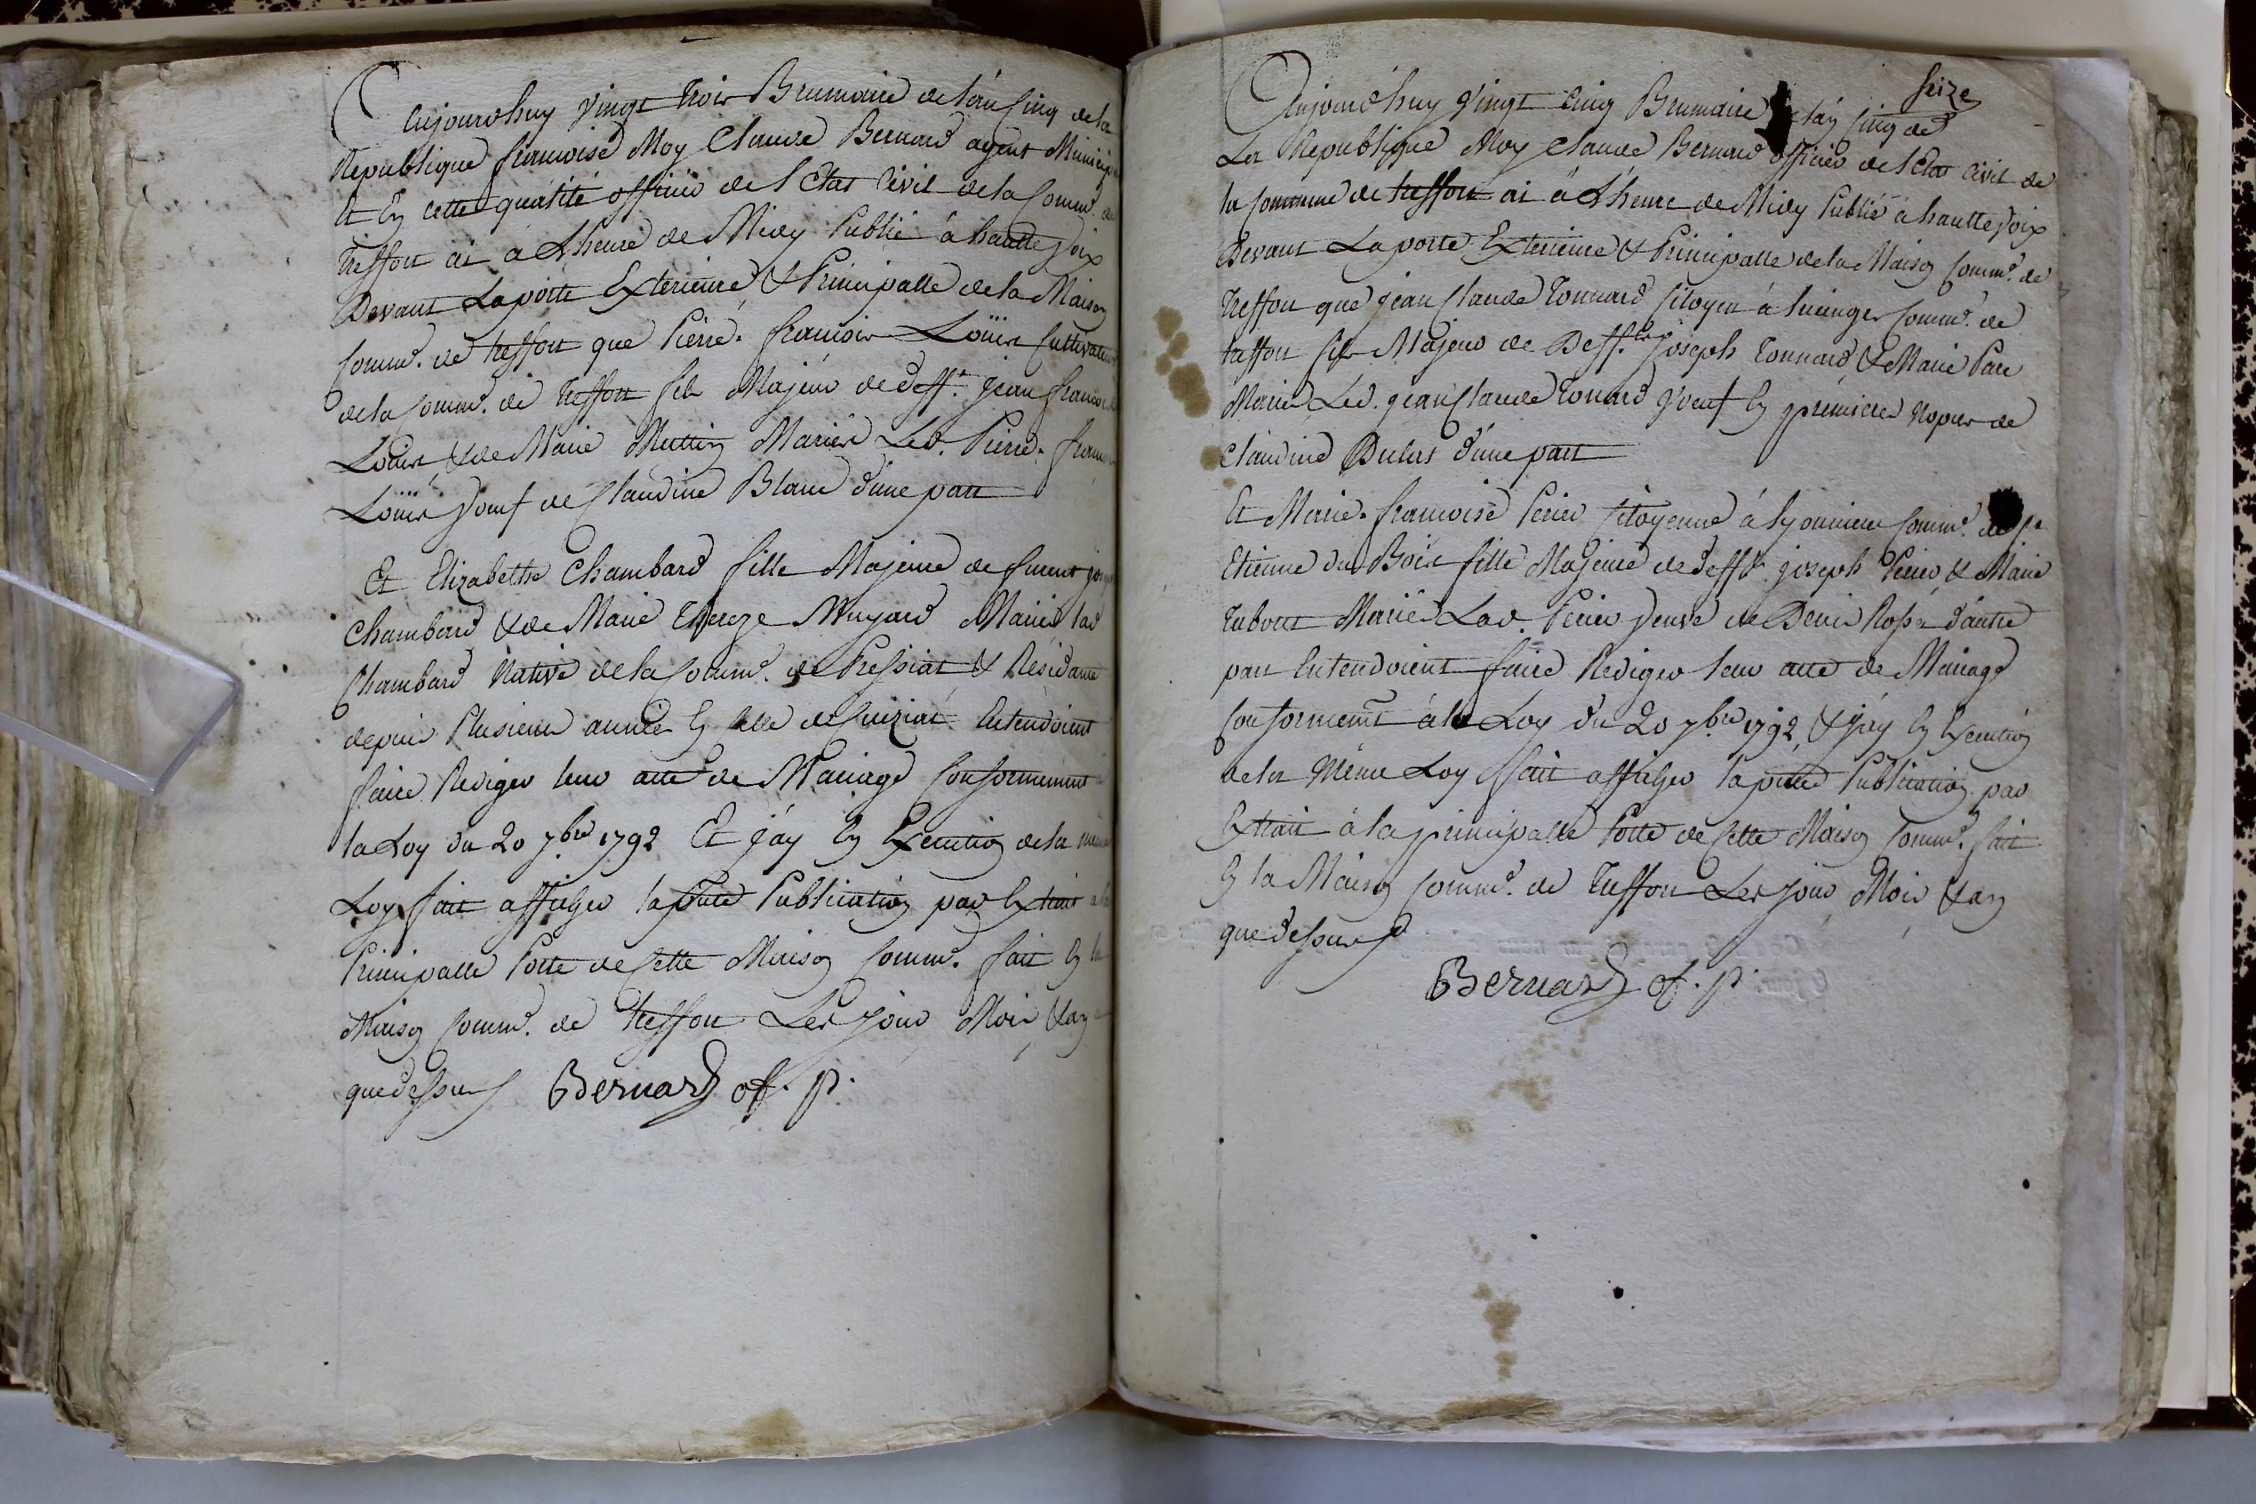 Aujourdhuy Vingt trois Brumaire de l'an Cinq de la
Republique francoise Moy Claude Bernard agent Municip
Et En cette qualité officier de l'Etat Civil de la Comm.e de
treffort ai à L'heure de Midy Publié à hautte Voix
Devant La porte Exterieure & Principalle de la Maison
Comm.e de treffort que Pierre-francois Loüis Cultivateur
de la Comm.e de treffort fils Majeur de deff.t jean francois
Loüis & de Marie Muttin Mariés Led. Pierre-francois
Loüis Veuf de Claudine Blanc d'une part
Et Elizabethe Chambard fille Majeure de furent
Chambard & de Marie Thereze Muyard Mariés lad
Chambard Native de la Comm.e de Pressiat & Residante
depuis Plusieurs années En celle de Cuiziat Entendoient
faire Rediger leur acte de Mariage Conformement
la Loy du 20 7bre 1792 Et j'ay En Execution de la même
Loy fait afficher la pnte Publication par Extrait
Principalle Porte de Cette Maison Comm.e fait En la
Maison Comm.e de treffort Les jour Mois & an
que dessus Bernard of. p.
seize
Aujourd'huy Vingt Cinq Brumaire l'an Cinq de
La Republique Moy Claude Bernard officier de l'Etat Civil de
la Commune de treffort ai à L'heure de Midy Publié à hautte Voix
Devant La porte Exterieure & Principalle de la Maison Comm.e de
Treffort que jean Claude Tonnard Citoyen à Lucinges Comm.e de
treffort fils Majeur de Deff.ts joseph Tonnard & Marie Pare
Mariés Led. jean Claude Tonnard Veuf En premieres Nopces de
Claudine Dulas d'une part
Et Marie-francoise Perier Citoyenne à Lyonniere Comm.e de St
Etienne du Bois fille Majeure de deff.ts joseph Perier & Marie
Tubout Mariés Lad. Perier Veuve de Denis d'autre
part Entendoient faire Rediger leur acte de Mariage
Conformem.t à la Loy du 20 7bre 1792 & j'ay En Execution
de la Même Loy fait afficher la pnte Publication par
Extrait à la principalle Porte de Cette Maison Comm.e fait
En la Maison Comm.e de Treffort Les jour Mois & an
que dessus
Bernard of. p.